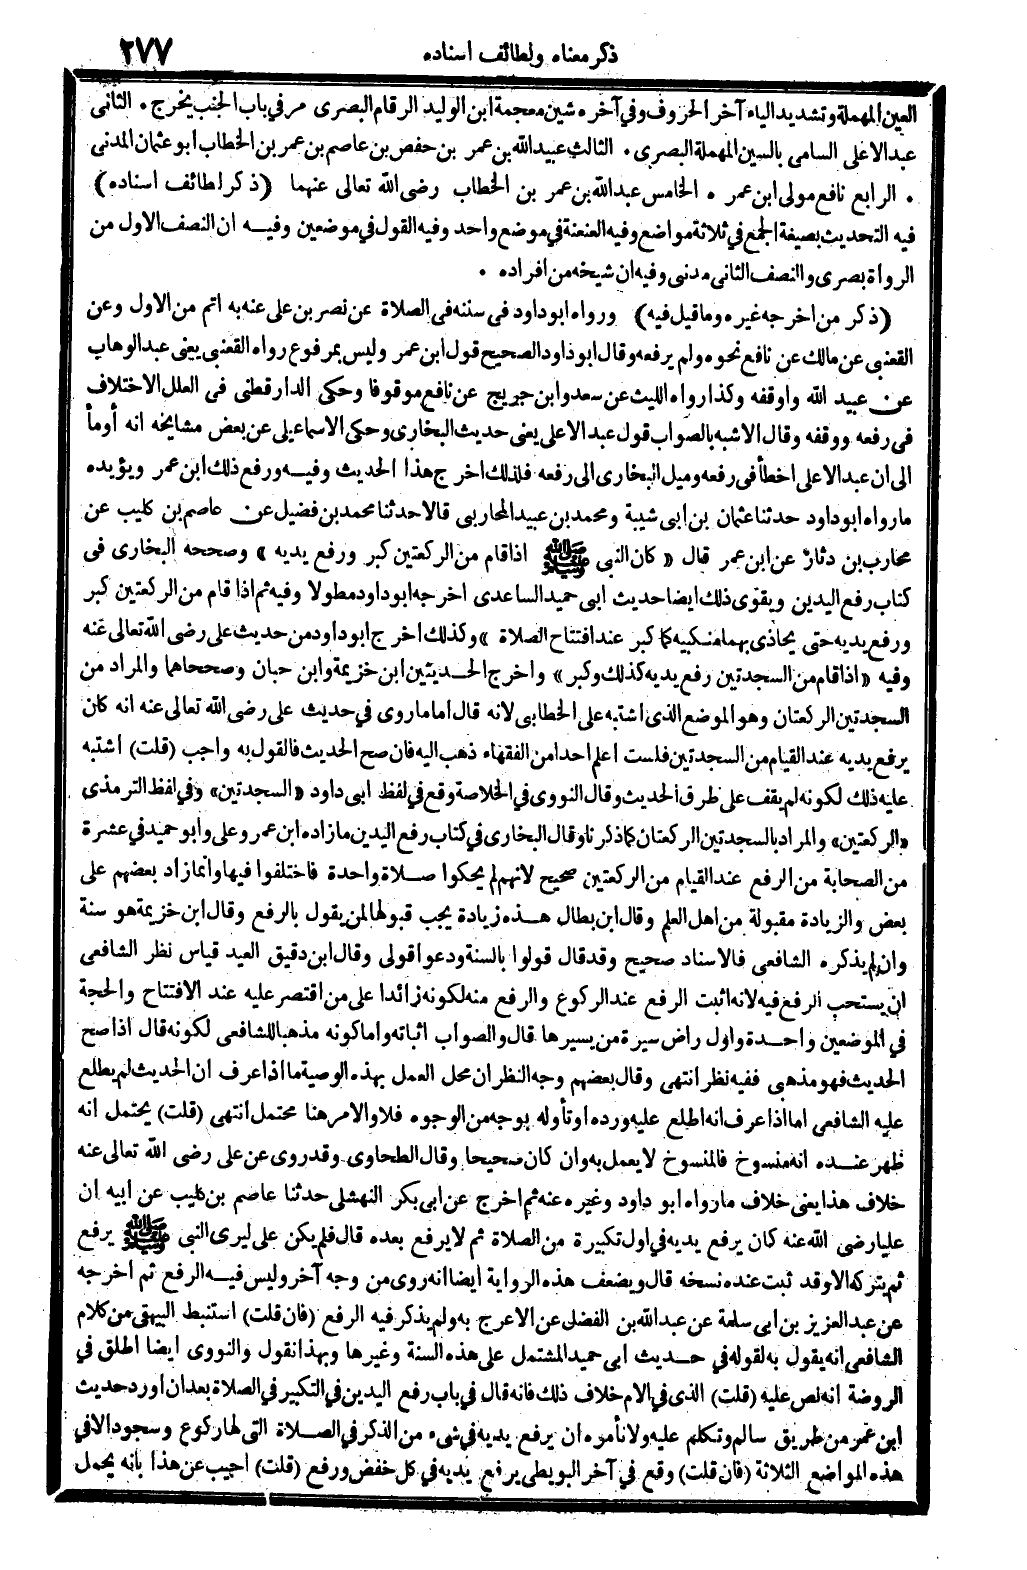 ذكر معناه ولطائف اسناده
٢٧٧
العين المهملة وتشديد الياء آخر الحروف وفي آخره شين معجمة ابن الوليد الرقام البصرى مر في باب الجنب يخرج . الثانى
عبد الاعلى السامى بالسين المهملة البصرى . الثالث عبيد الله بن عمر بن حفص بن عاصم بن عمر بن الخطاب ابو عثمان المدنى
. الرابع نافع مولى ابن عمر . الخامس عبد الله بن عمر بن الخطاب رضى الله تعالى عنهما (ذكر لطائف اسناده)
فيه التحديث بصيغة الجمع في ثلاثة مواضع وفيه العنعنة في موضع واحد وفيه القول في موضعين وفيه ان النصف الاول من
الرواة بصرى والنصف الثانى مدنى وفيه ان شيخه من افراده .
(ذكر من اخرجه غيره وما قيل فيه) ورواه ابو داود فى سننه فى الصلاة عن نصر بن على عنه به اتم من الاول وعن
القعنبى عن مالك عن نافع نحوه ولم يرفعه وقال ابو داود الصحيح قول ابن عمر وليس بمرفوع رواه القعنبى يعنى عبد الوهاب
عن عبيد الله واوقفه وكذا رواه الليث عن سعد وابن جريج عن نافع موقوفا وحكى الدارقطنى فى العلل الاختلاف
فى رفعه ووقفه وقال الاشبه بالصواب قول عبد الاعلى يعنى حديث البخارى وحكى الاسماعيلى عن بعض مشايخه انه أومأ
الى ان عبد الاعلى اخطأ فى رفعه وميل البخارى الى رفعه فلذلك اخرج هذا الحديث وفيه ورفع ذلك ابن عمر ويؤيده
ما رواه ابو داود حدثنا عثمان بن ابى شيبة ومحمد بن عبيد المحاربى قالا حدثنا محمد بن فضيل عن عاصم بن كليب عن
محارب بن دثار عن ابن عمر قال « كان النبى ﷺ اذا قام من الركعتين كبر ورفع يديه » وصححه البخارى فى
كتاب رفع اليدين ويقوى ذلك ايضا حديث ابى حميد الساعدى اخرجه ابو داود مطولا وفيه ثم اذا قام من الركعتين كبر
ورفع يديه حتى يحاذى بهما منكبيه كما كبر عند افتتاح الصلاة » وكذلك اخرج ابو داود من حديث على رضى الله تعالى عنه
وفيه « اذا قام من السجدتين رفع يديه كذلك وكبر » واخرج الحديثين ابن خزيمة وابن حبان وصححاهما والمراد من
السجدتين الركعتان وهو الموضع الذى اشتبه على الخطابى لانه قال اما ما روى في حديث على رضى الله تعالى عنه انه كان
يرفع يديه عند القيام من السجدتين فلست اعلم احدا من الفقهاء ذهب اليه فان صح الحديث فالقول به واجب (قلت) اشتبه
عليه ذلك لكونه لم يقف على طرق الحديث وقال النووى في الخلاصة وقع في لفظ ابى داود «السجدتين» وفي لفظ الترمذى
«الركعتين» والمراد بالسجدتين الركعتان كما ذكرنا وقال البخارى في كتاب رفع اليدين ما زاده ابن عمر وعلى وابو حميد في عشرة
من الصحابة من الرفع عند القيام من الركعتين صحيح لانهم لم يحكوا صلاة واحدة فاختلفوا فيها وانما زاد بعضهم على
بعض والزيادة مقبولة من اهل العلم وقال ابن بطال هذه زيادة يجب قبولها لمن يقول بالرفع وقال ابن خزيمة هو سنة
وان لم يذكره الشافعى فالاسناد صحيح وقد قال قولوا بالسنة ودعوا قولى وقال ابن دقيق العيد قياس نظر الشافعى
ان يستحب الرفع فيه لانه اثبت الرفع عند الركوع والرفع منه لكونه زائدا على من اقتصر عليه عند الافتتاح والحجة
في الموضعين واحدة واول راض سيرة من يسيرها قال والصواب اثباته واما كونه مذهبا للشافعى لكونه قال اذا صح
الحديث فهو مذهبى ففيه نظر انتهى وقال بعضهم وجه النظر ان محل العمل بهذه الوصية ما اذا عرف ان الحديث لم يطلع
عليه الشافعى اما اذا عرف انه اطلع عليه ورده او تأوله بوجه من الوجوه فلا والامر هنا محتمل انتهى (قلت) يحتمل انه
ظهر عنده انه منسوخ فالمنسوخ لا يعمل به وان كان صحيحا وقال الطحاوى وقد روى عن على رضى الله تعالى عنه
خلاف هذا يعنى خلاف ما رواه ابو داود وغيره عنه ثم اخرج عن ابى بكر النهشلى حدثنا عاصم بن كليب عن ابيه ان
عليا رضى الله عنه كان يرفع يديه في اول تكبيرة من الصلاة ثم لا يرفع بعده قال فلم يكن على ليرى النبى ﷺ يرفع
ثم يتركه الا وقد ثبت عنده نسخه قال ويضعف هذه الرواية ايضا انه روى من وجه آخر وليس فيه الرفع ثم اخرجه
عن عبد العزيز بن ابى سلمة عن عبد الله بن الفضل عن الاعرج به ولم يذكر فيه الرفع (فان قلت) استنبط البيهقى من كلام
الشافعى انه يقول به لقوله في حديث ابى حميد المشتمل على هذه السنة وغيرها وبهذا نقول والنووى ايضا اطلق في
الروضة انه نص عليه (قلت) الذى في الام خلاف ذلك فانه قال في باب رفع اليدين في التكبير في الصلاة بعد ان اورد حديث
ابن عمر من طريق سالم وتكلم عليه ولا نأمره ان يرفع يديه في شىء من الذكر في الصلاة التى لها ركوع وسجود الا في
هذه المواضع الثلاثة (فان قلت) وقع في آخر البويطى يرفع يديه في كل خفض ورفع (قلت) اجيب عن هذا بانه يحمل